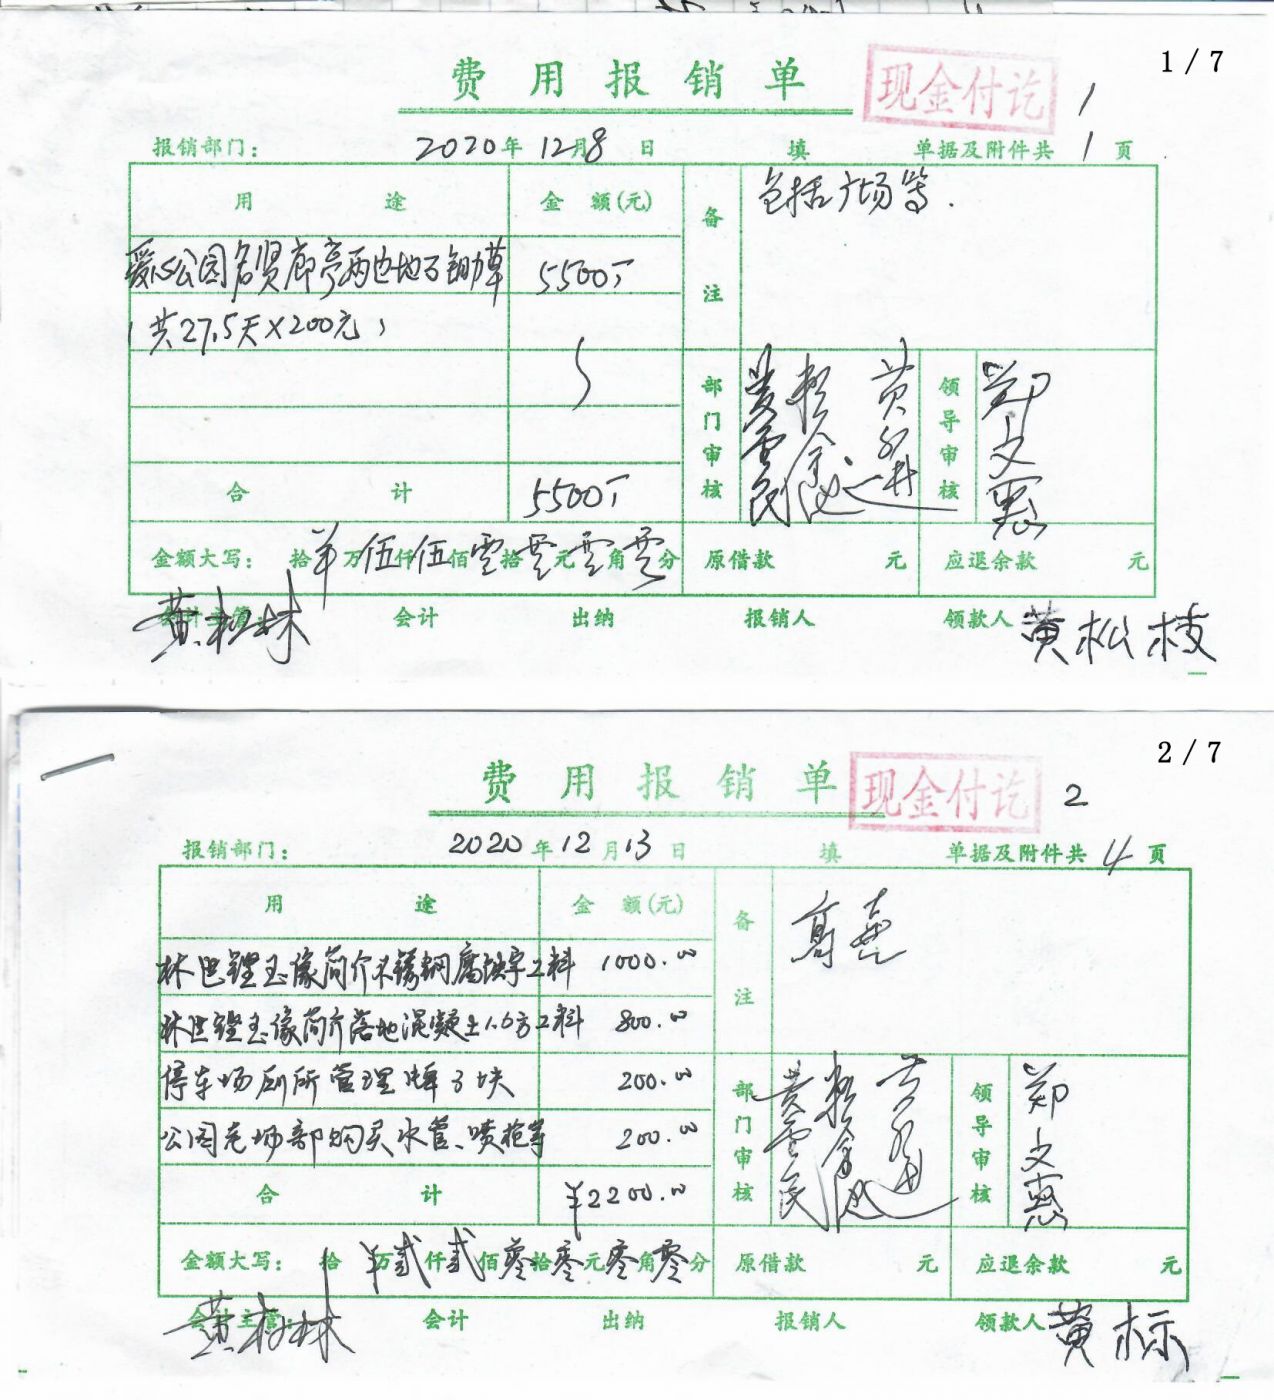 1 / 7
费用报销单
现金付讫
1
报销部门： 2020年12月8日 填 单据及附件共 1 页
用途 金额(元) 备注 包括广场等.
爱心公园名贤廊亭两边地了锄草 5500
(共27.5天×200元)
部门审核 领导审核 郑文惠
合计 5500
金额大写： 拾 万伍仟伍佰零拾零元零角零分 原借款 元 应退余款 元
会计主管： 黄松林 会计 出纳 报销人 领款人 黄松枝
2 / 7
费用报销单
现金付讫
2
报销部门： 2020年12月13日 填 单据及附件共 4 页
用途 金额(元) 备注
林巴锂玉像简介不锈钢腐蚀字工料 1000.00
林巴锂玉像简介落地混凝土1.6方工料 800.00
停车场厕所管理牌3块 200.00
公园老场部购买水管、喷枪等 200.00
部门审核 领导审核 郑文惠
合计 ¥2200.00
金额大写： 拾 万贰仟贰佰零拾零元零角零分 原借款 元 应退余款 元
会计主管： 黄松林 会计 出纳 报销人 领款人 黄标